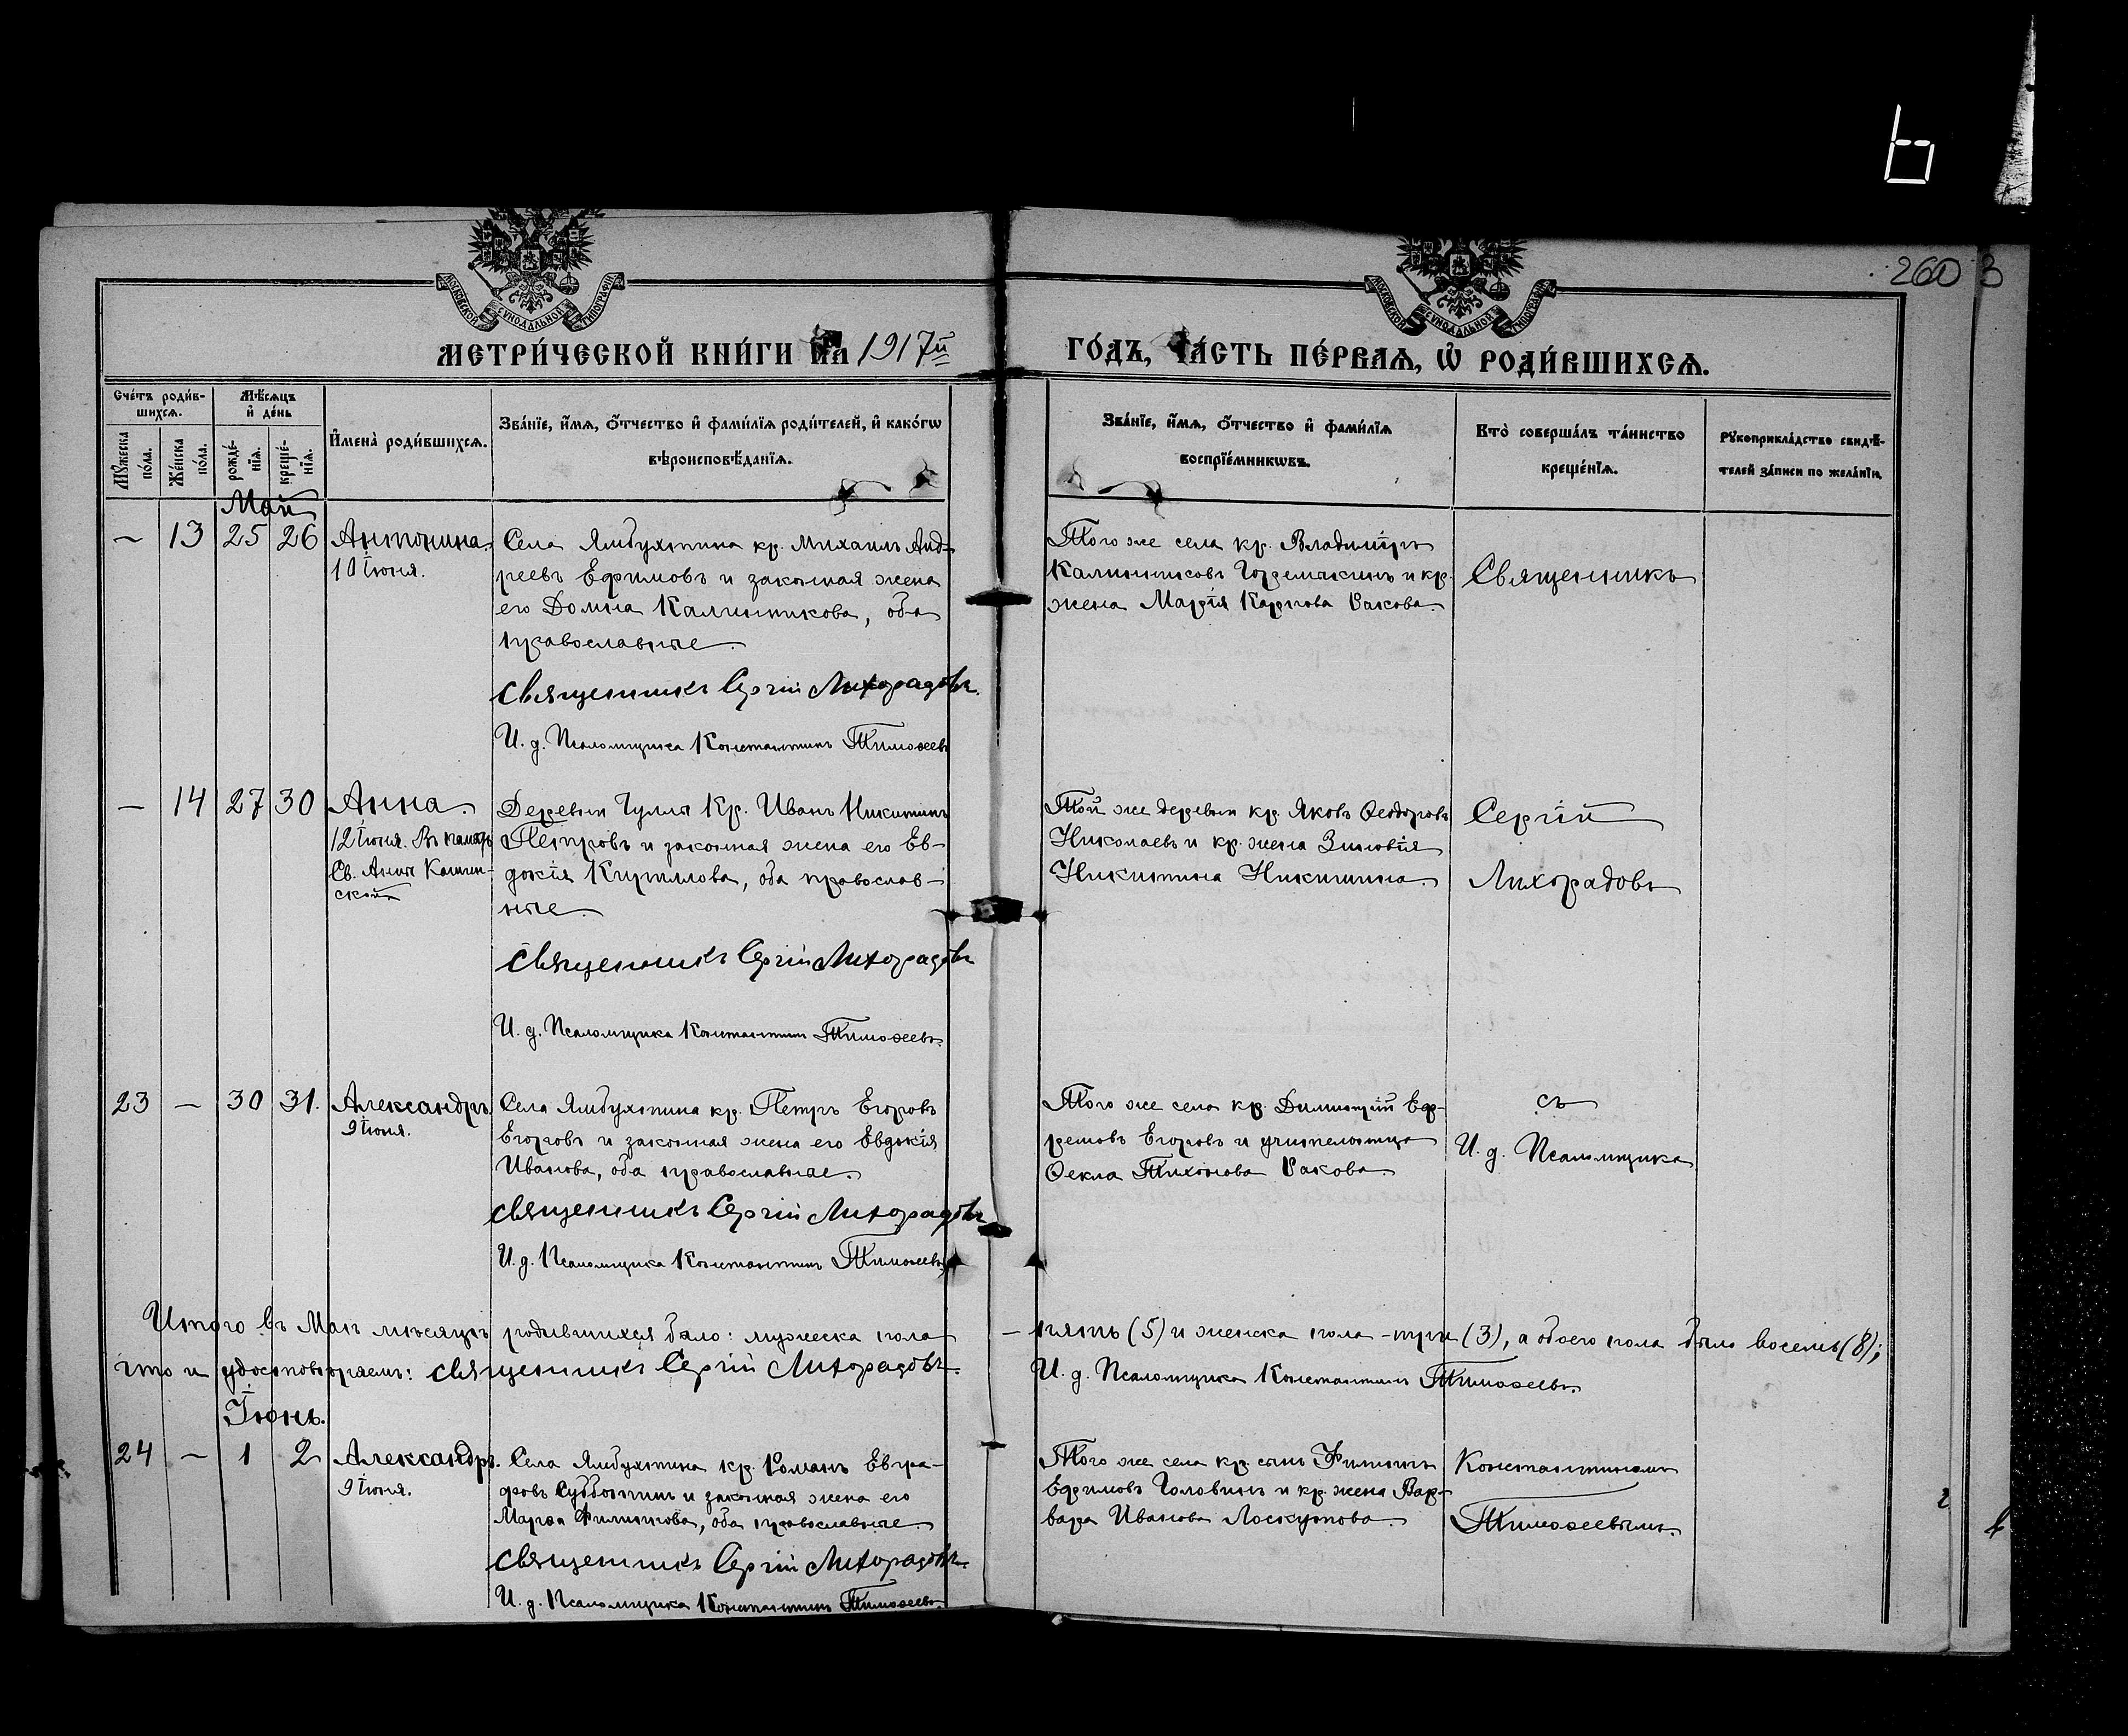 260 3
МОСКОВСКОЙ СѴНОДАЛЬНОЙ ТИПОГРАФІИ
МОСКОВСКОЙ СѴНОДАЛЬНОЙ ТИПОГРАФІИ
МЕТРИ́ЧЕСКОЙ КНИ́ГИ НА 1917й ГО́ДЪ, ЧА́СТЬ ПЕ́РВАѦ, Ѡ҆ РОДИ́ВШИХСѦ.
Сче́тъ роди́в-
шихсѧ.
Мꙋ́жеска
по́ла.
Же́нска
по́ла.
Мѣ́сѧцъ
и҆ де́нь
рожде́-
нїѧ.
креще́-
нїѧ.
И҆мена̀ роди́вшихсѧ.
Зва́нїе, и҆́мѧ, ѻ҆́тчество и҆ фами́лїѧ роди́телей, и҆ како́гѡ
вѣроисповѣ́данїѧ.
Зва́нїе, и҆́мѧ, ѻ҆́тчество и҆ фами́лїѧ
воспрїе́мникѡвъ.
Кто̀ соверша́лъ та́инство
креще́нїѧ.
Рꙋкоприкла́дство свидѣ́-
телей за́писи по жела́нїю.
Май
— 13 25 26 Антонина.
10 Іюня.
Села Ямбухтина кр. Михаилъ Анд-
реевъ Ефимовъ и законная жена
его Домна Калинникова, оба
православные.
Священникъ Сергій Лихорадовъ.
И. д. Псаломщика Константинъ Тимоѳеевъ
Того же села кр. Владиміръ
Калинниковъ Гордемакинъ и кр.
жена Марія Карпова Сакова.
Священникъ
— 14 27 30 Анна.
12 Іюня. Въ память
Св. Анны Кашин-
ской
Деревни Гулли Кр. Иванъ Никитинъ
Петровъ и законная жена его Ев-
докія Кириллова, оба православ-
ные.
Священникъ Сергій Лихорадовъ
И. д. Псаломщика Константинъ Тимоѳеевъ.
Той же деревни кр. Яковъ Ѳеодоровъ
Николаевъ и кр. жена Зиновія
Никитина Никишина.
Сергій
Лихорадовъ
23 — 30 31. Александръ
9 Іюня.
Села Ямбухтина кр. Петръ Егоровъ
Егоровъ и законная жена его Евдокія
Иванова, оба православные.
Священникъ Сергій Лихорадовъ
И. д. Псаломщика Константинъ Тимоѳеевъ.
Того же села кр. Димитрій Еф-
ремовъ Егоровъ и учительница
Ѳекла Тихонова Сакова.
съ
И. д. Псаломщика
Итого въ Маѣ мѣсяцѣ родившихся было: мужеска пола — пять (5) и женска пола - три (3), а обоего пола было восемь (8);
что и удостовѣряемъ: Священникъ Сергій Лихорадовъ. И. д. Псаломщика Константинъ Тимоѳеевъ.
Іюнь.
24 — 1 2 Александръ.
9 Іюня.
Села Ямбухтина кр. Романъ Евгра-
фовъ Субботинъ и законная жена его
Марѳа Филиппова, оба православные.
Священникъ Сергій Лихорадовъ.
И. д. Псаломщика Константинъ Тимоѳеевъ.
Того же села кр. сынъ Филиппъ
Ефимовъ Головинъ и кр. жена Вар-
вара Иванова Лоскутова.
Константиномъ
Тимоѳеевымъ.